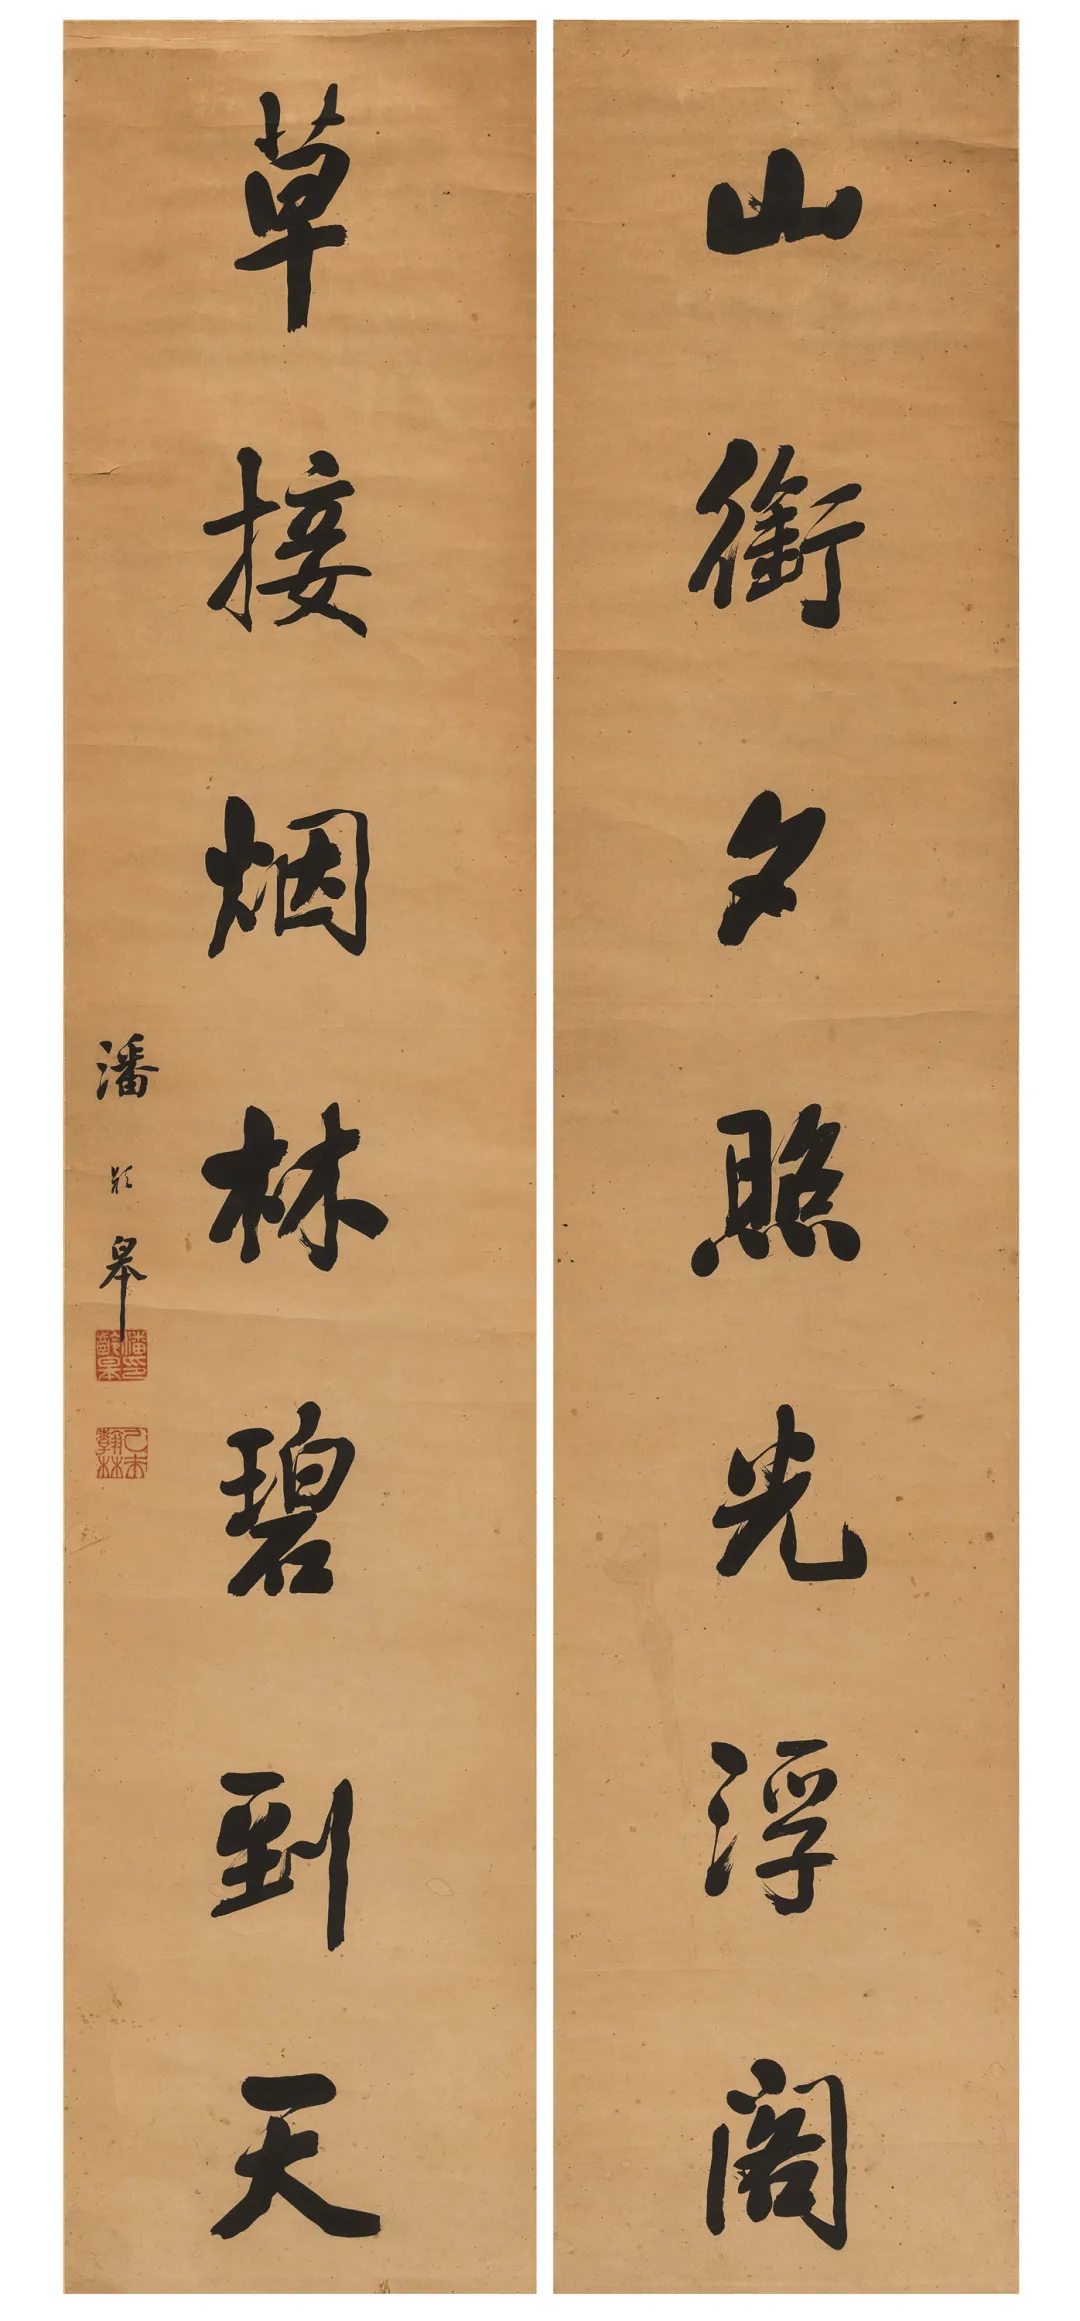 山銜夕照光浮阁
草接烟林碧到天
潘齡皋
潘印齡皋
乙未翰林